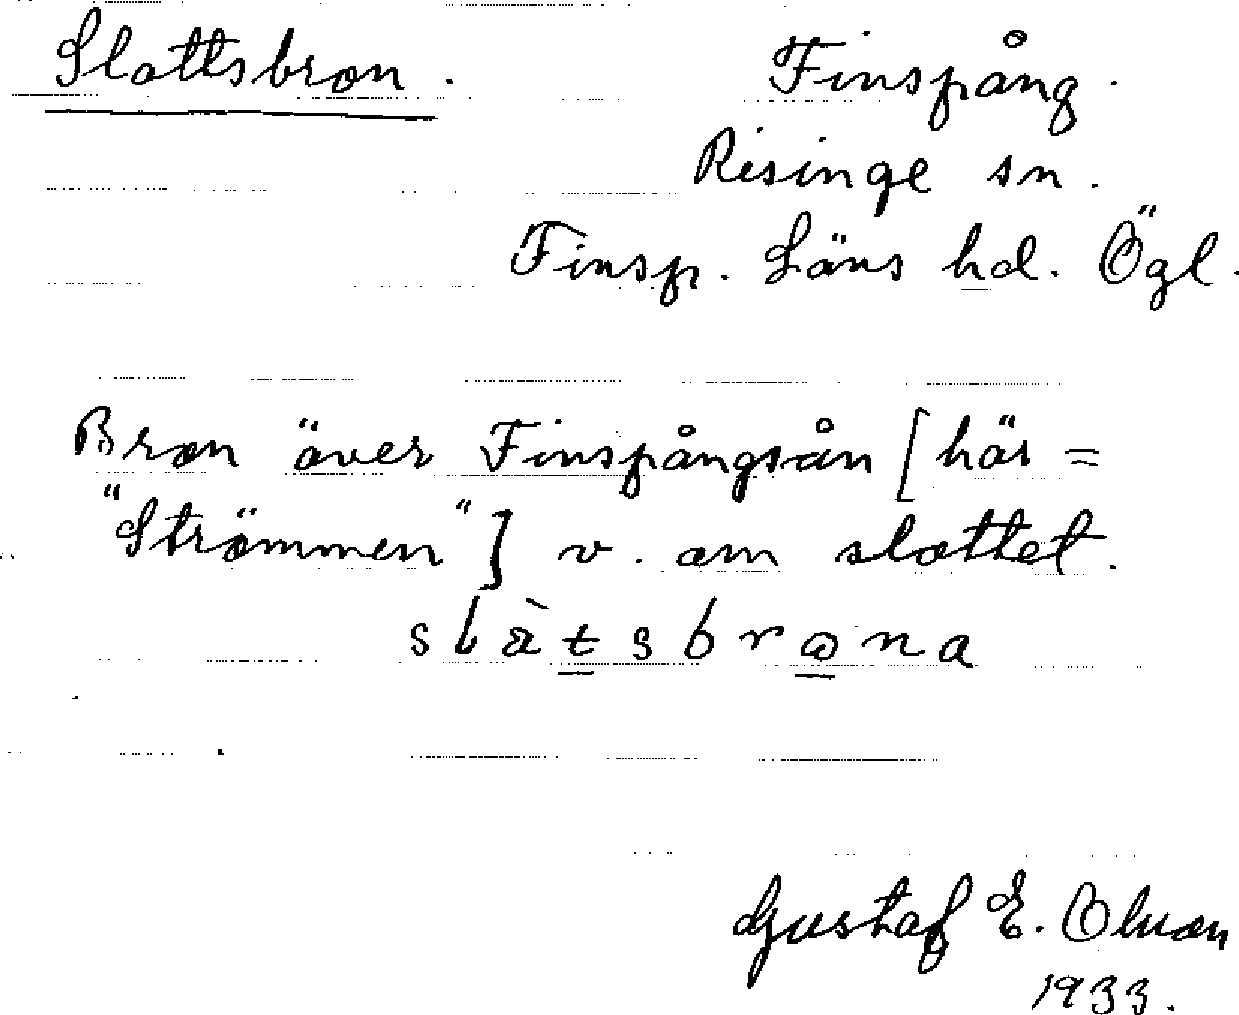 Slottsbron. Finspång.
Risinge sn.
Finsp. Läns hd. Ögl.
Bron över Finspångsån [här =
"Strömmen"] v. om slottet.
Gustaf E. Olson
1933.